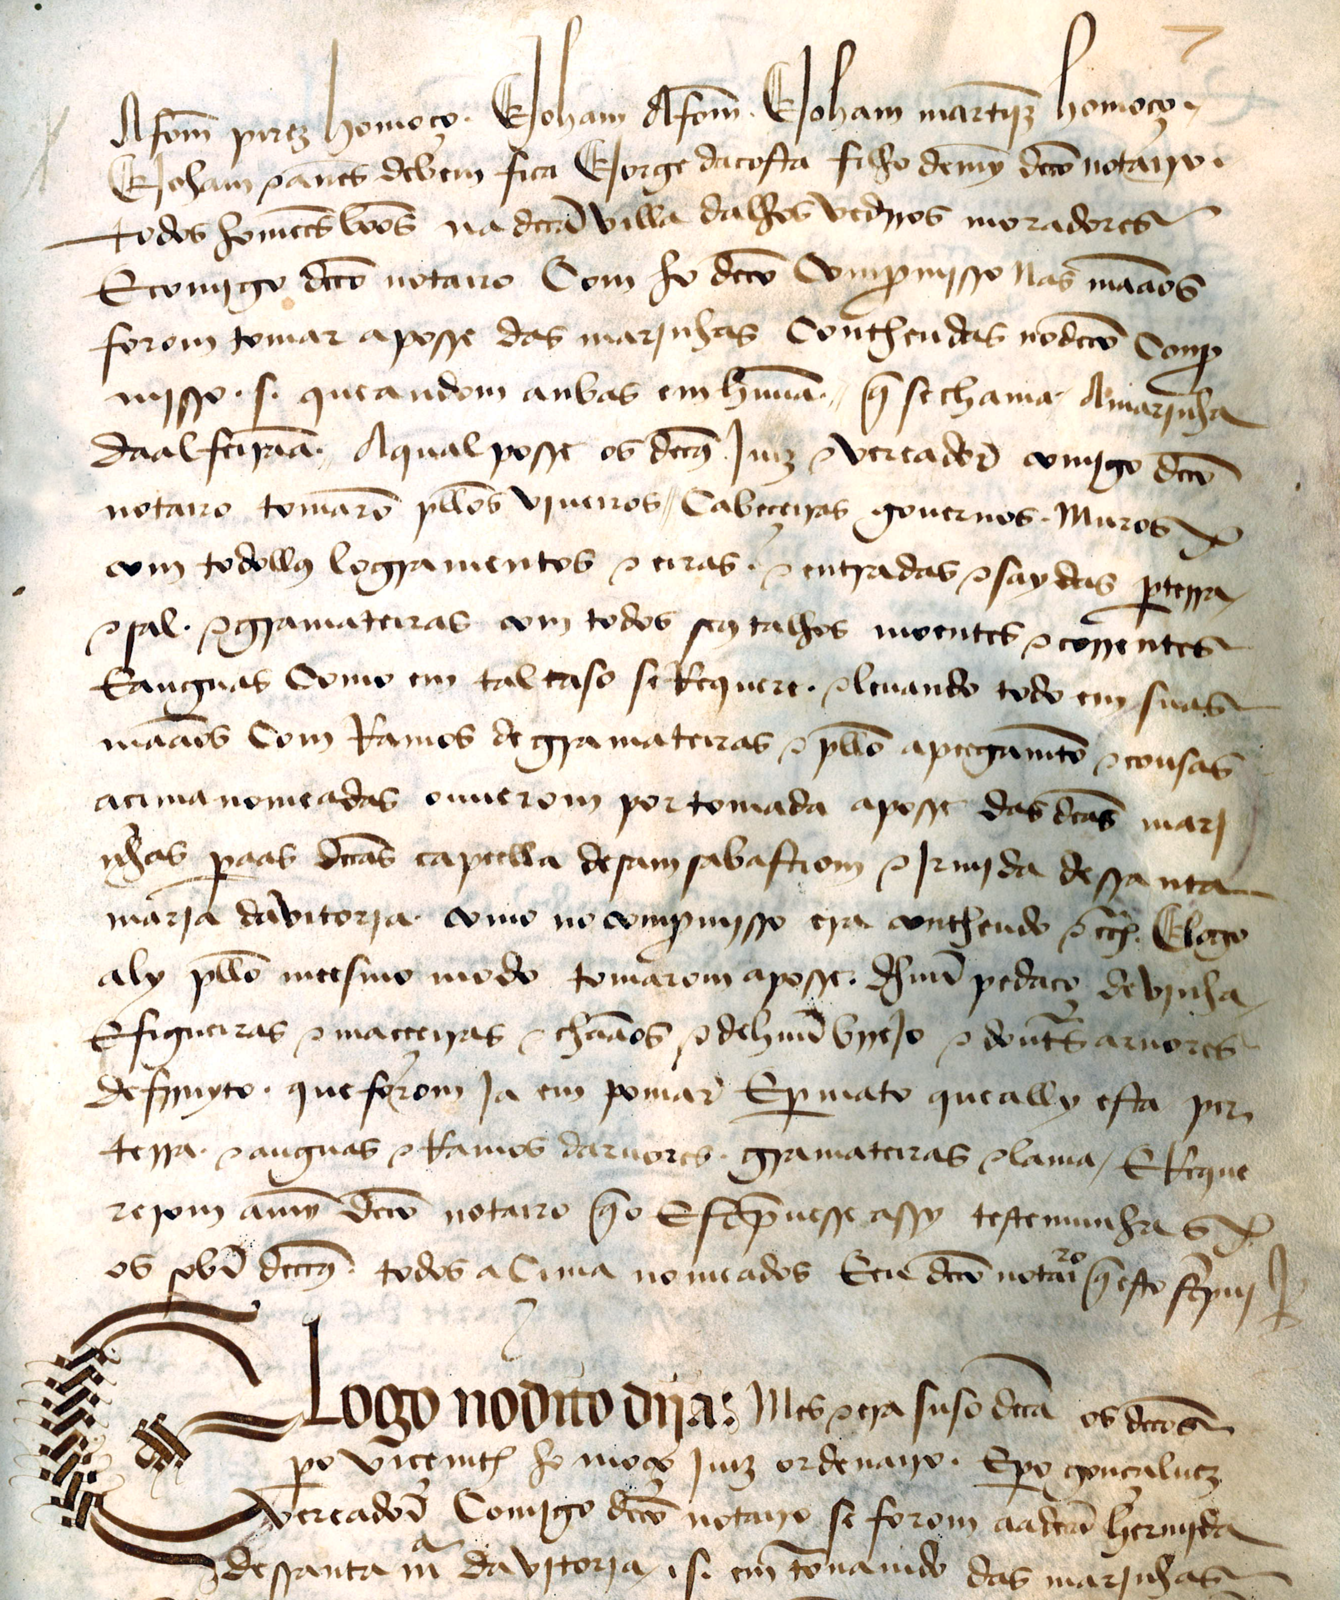 7
Afom̃ pirez homoço. E Joham Afom̃. E Joham martĩz homoço.
E Joham eanes de bem fica E Jorge dacosta filho demỹ dcõ notairo.
todos homeẽs boõs na dcã villa dalhos vedros moradores
E comigo dcõ notairo Com ho dcõ Compmisso nas maãos
forom tomar aposse das marjnhas Contheudas nodcõ Comp
misso. s. que andom anbas em hũma. q̃ se chama Amarjnha
da alfeirã. Aqual posse os dcõs Juiz e vereador comigo dcõ
notairo tomarõ pllos viueiros Cabeçeiras gouernos. Muros
com todollos logramentos e eiras. e entradas e saydas p terra
e sal. e gramateiras com todos seus talhos moentes e correntes
E auguas Como em tal caso se Requere. e leuando todo em suas
maãos Com Ramos de gramateiras e pllo apeegamẽto e cousas
acima nomeadas ouuerom por tomada aposse das dcãs marj
nhas paas dcãs capella de sam sabastiom e Jrmida de ssanta
maria da vitoria. como no compmisso era contheudo e Elogo
aly pllo meesmo modo tomarom aposse. dhũu pedaço de vinha
E figueiras e maceiras e chaãos e de hũu brejo e doutros aruores
de fruyto. que forom Ja em pomar E p mato que ally esta per
terra. e auguas e Ramos daruores. gramateiras e lama E Reque
rerom amỹ dcõ notairo q̃ o Escpuesse assy testemunhas
os sobrdcõs todos aCima nomeados E eu dcõ notairo q̃ esto scpuj
E Logo nodito dya: Mes e era suso dcã os dcõs
po viceente ho moço Juiz ordenairo. E po gonçaluez
vereador Comigo dcõ notairo se forom aa dcã hermida
de ssanta mª da vitoria .s. em tomamdo das marjnhas